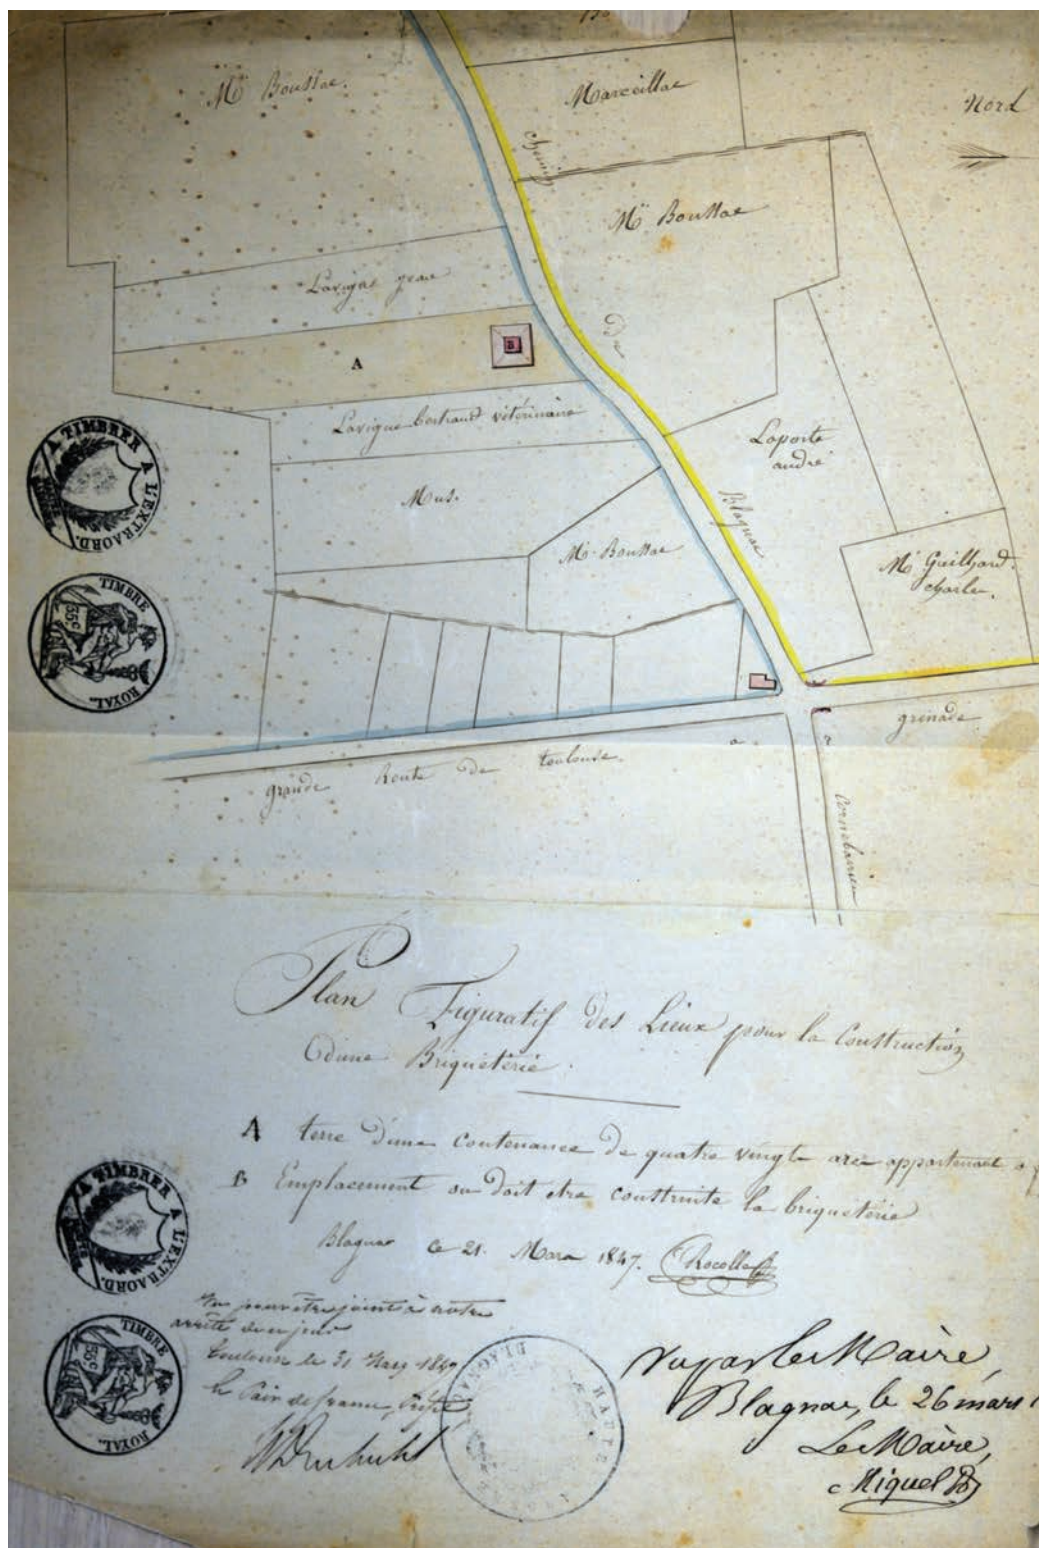 Mr Boussac.
Marceillac
Nord
chemin
Mr Boussac
Lavigne jean
de
B
A
Lavigne bertrand vétérinaire
Laporte
andré
Mus.
Blagnac
Mr Boussac
Mr Guilhard
charles.
grande Route de toulouse.
a
grenade
Cornebarrieu
A TIMBRER A L'EXTRAORD.
TIMBRE
35c
ROYAL.
Plan Figuratif des Lieux pour la Construction
d'une Briquéterie.
A terre d'une contenance de quatre vingts ares appartenant a
B Emplacement ou doit etre construite la briquéterie
Blagnac ce 21. Mars 1847.
A TIMBRER A L'EXTRAORD.
TIMBRE
35c
ROYAL.
Vu pour être joint à notre
arrêté de ce jour
Toulouse le 31 Mars 1847
le Pair de france, Préfet
BLAGNAC
HAUTE GARONNE
Vu par le Maire,
Blagnac, le 26 mars
Le Maire,
Miquel